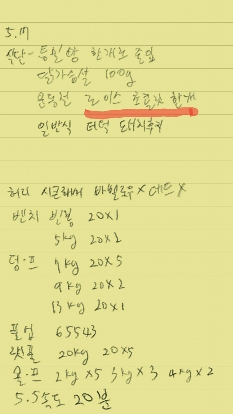 5.17
식단 - 통밀빵 한개반 줄임
닭가슴살 100g
운동전 로이스 초콜릿 한개
일반식 더덕 돼지후지
허리 시큰해서 바벨로우X 데드X
벤치 빈봉 20X1
5kg 20X2
덤·프 7kg 20X5
9kg 20X2
13kg 20X1
풀업 65543
랫풀 20kg 20X5
숄·프 2kg X5 3kg X3 4kg X2
5.5속도 20분